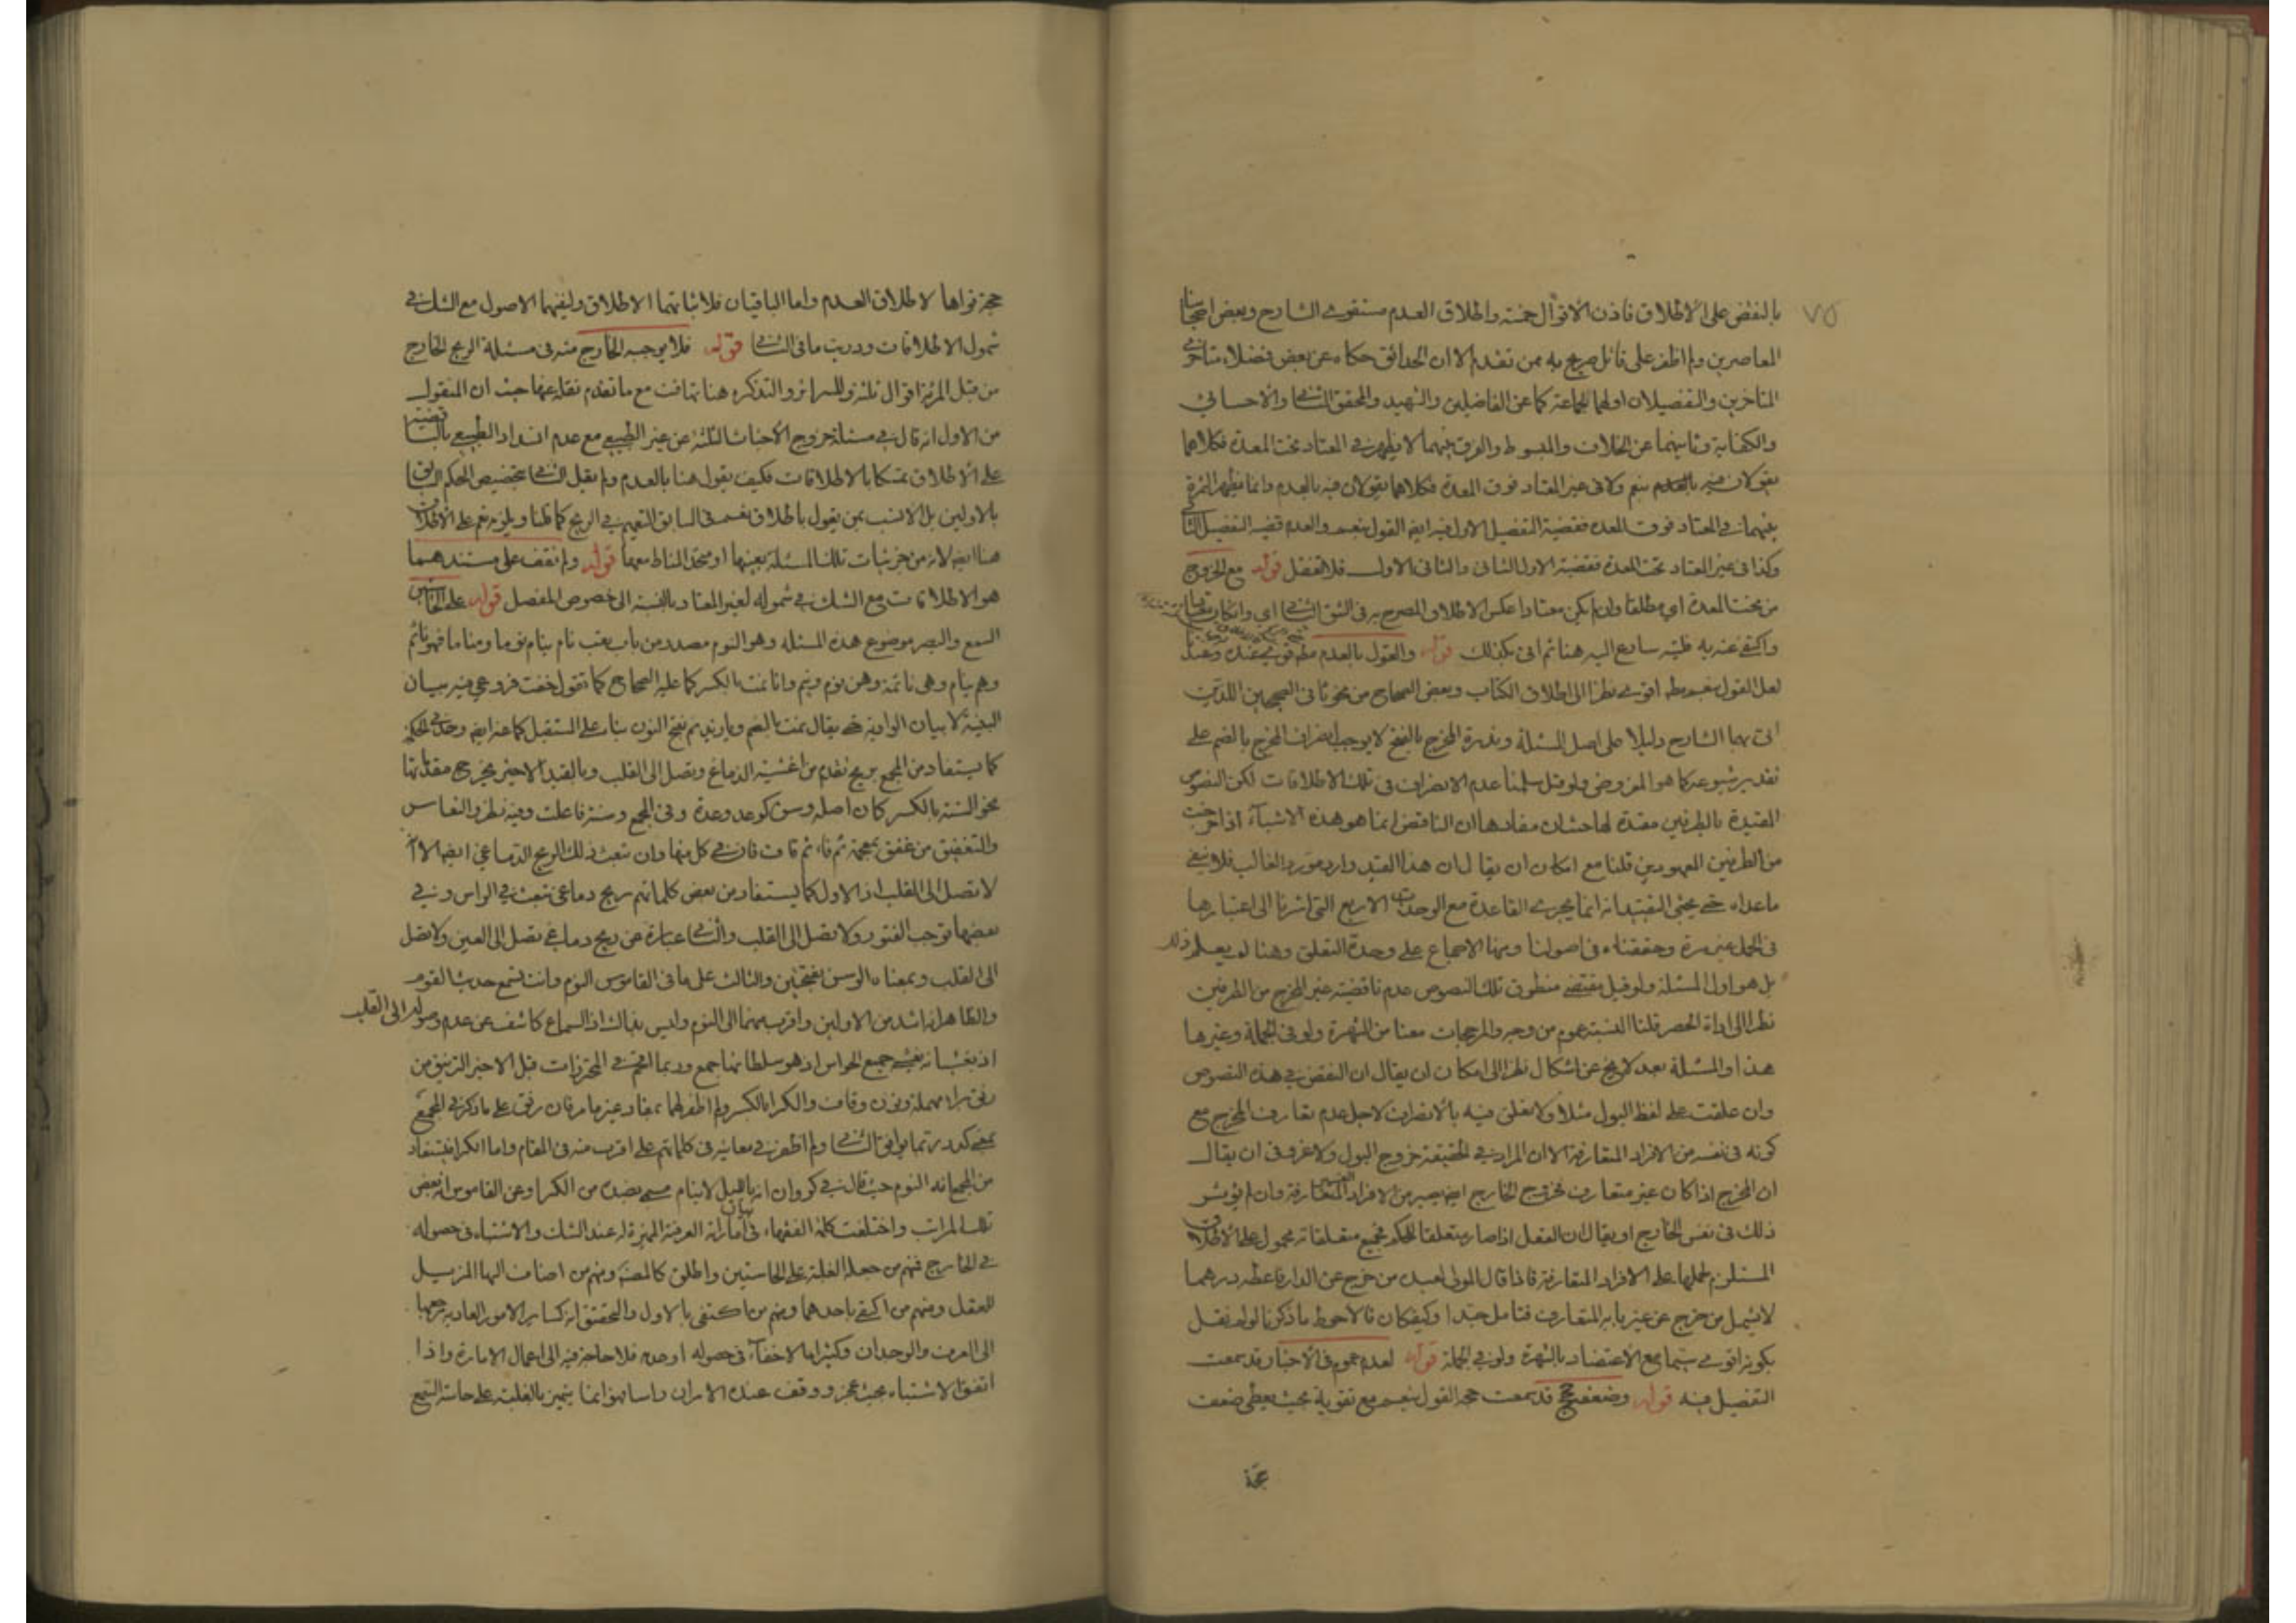 ٧٥
بالنقض على الاطلاق فاذن الاقوال خمسة واطلاق العدم مستقوى الشارح وبعض اصحابنا
المعاصرين ولم اظفر على قائل صريح به ممن تقدم الا ان الحدائق حكاه عن بعض فضلاء متأخري
المتاخرين والتفصيلان اولهما لجماعة كما عن الفاضلين والشهيد والمحقق الثاني والاحسائي
والكفاية وثانيهما عن الخلاف والمبسوط والفرق بينهما لا يظهر في المعتاد تحت المعدة فكلاهما
يقولان فيه بنعم ولا في غير المعتاد فوق المعدة فكلاهما يقولان فيه بالعدم وانما مظهر الثمرة
بينهما في المعتاد فوق المعدة فقضية التفصيل الاول فيه ايضا القول بنعم والعدم قضية التفصيل الثاني
وكذا في غير المعتاد تحت المعدة فقضية الاول الثاني والثاني الاول فلا تغفل قوله مع الخروج
من تحت المعدة اي مطلقا وان لم يكن معتادا عكس الاطلاق المصرح به في الشق الثاني اي وان كان
واكتفى عنه به ظنه سارع اليه هنا ثم اتى بكذلك قوله والقول بالعدم مطلقا قوي عنده وعندنا
لعل القول بنعم مطلقا اقوى نظرا الى اطلاق الكتاب وبعض الصحاح من نحو ثاني الصحيحين اللذين
اتى بهما الشارح دليلا على اصل المسئلة وندرة المخرج بالفتح لا يوجب انصراف المخرج بالضم على
تقدير شيوعه كما هو المفروض ولو قيل سلمنا عدم الانصراف في تلك الاطلاقات لكن النصوص
المقيدة بالطرفين مقيدة لها حيث ان مفادها ان الناقض انما هو هذه الاشياء اذا خرجت
من الطرفين المعهودين قلنا مع امكان ان يقال ان هذا القيد وارد مورد الغالب فلا ينفي
ما عداه حتى يجئ التقييد انه انما يجري القاعدة مع الوحدات الاربع التي اشرنا الى اعتبارها
في الحمل غير مرة وحققناه في اصولنا ومنها الاجماع على وحدة التعلق وهنا لم يعلم ذلك
بل هو اول المسئلة ولو قيل مقتضى منطوق تلك النصوص عدم ناقضية غير المخرج من الطرفين
نظرا الى اداة الحصر قلنا النسبة عموم من وجه والمرجحات معنا من الشهرة ولو في الجملة وغيرها
هذا والمسئلة بعد لا يخ عن اشكال نظرا الى امكان ان يقال ان النقض في هذه النصوص
وان علقت على لفظ البول مثلا ولا نعلق فيه بالانصراف لاجل عدم تعارف المخرج مع
كونه في نفسه من الافراد المتعارفة الا ان المراد في الحقيقة خروج البول ولا غرو في ان يقال
ان المخرج اذا كان غير متعارف فخروج الخارج ايضا يصير من الافراد الغير المتعارفة وان لم يؤثر
ذلك في نفس الخارج او يقال ان الفعل اذا صار متعلقا للحكم فجميع متعلقاته محمول على الاطلاق
المستلزم لحملها على الافراد المتعارفة فاذا قال المولى لعبده من خرج عن الدار فاعطه درهما
لا يشمل من خرج عن غير بابه المتعارف فتأمل جيدا وكيف كان فالاحوط ما ذكرنا لو لم نقل
بكونه اقوى سيما مع الاعتضاد بالشهرة ولو في الجملة قوله لعدم عموم في الاخبار قد سمعت
التفصيل فيه قوله وضعف حجج قد سمعت حجة القول بنعم مع تقويه بحيث يعطى ضعف
حجة
حجة نواها لاطلاق العدم واما الباقيان فلاثباتهما الاطلاق ولنفيهما الاصول مع الشك في
شمول الاطلاقات ودريت ما في الثاني قوله فلا يوجبه الخارج منه في مسئلة الريح الخارج
من قبل المرئة اقوال ثلثة وللسرائر والتذكرة هنا تهافت مع ما تقدم نقله عنهما حيث ان المنقول
من الاول انه قال في مسئلة خروج الاحداث الثلثة عن غير الطبيعي مع عدم انسداد الطبيعي بالناقضية
على الاطلاق تمسكا بالاطلاقات فكيف يقول هنا بالعدم ولم يقبل الثاني تخصيص الحكم السابق
بالاولين بل الانسب بمن يقول باطلاق نعم في السابق التعميم في الريح كما قلنا ويلزمه نعم على الاطلاق
هنا ايضا لانه من جزئيات تلك المسئلة بعينها او متحد المناط معها قوله ولم نقف على مستندهما
هو الاطلاقات مع الشك في شموله لغير المعتاد بالنسبة الى خصوص المفصل قوله على الحاستين
السمع والبصر موضوع هذه المسئلة وهو النوم مصدر من باب تعب نام ينام نوما ومناما فهو نائم
وهم نيام وهي نائمة وهن نوم ونيم واما نمت بالكسر كما عليه الصحاح كما تقول خفت فروعي فيه بيان
البنية لا بيان الواوية حتى يقال نمت بالضم ويا زيد نم بفتح النون بناء على المستقبل كما عنه ايضا وحده في الحكم
كما يستفاد من المجمع بريح تقدم من اغشية الدماغ وتصل الى القلب وبالقيد الاخير يخرج مقدماتها
نحو السنة بالكسر كان اصله وسن كوعد وعدة وفي المجمع وسنة فاعلت وفيه نظر والنعاس
والتغفيق من غفق بمعجمة ثم فاء ثم قاف فان في كل منها وان تبعث ذلك الريح الدماغي ايضا الا انه
لا تصل الى القلب اذ الاول كما يستفاد من بعض كلماتهم ريح دماغي تبعث في الراس وفي
بعضها توجب الفتور ولا تصل الى القلب والثاني عبارة عن ريح دماغي تصل الى العين ولا تصل
الى القلب وبمعناه الوسن بفتحتين والثالث على ما في القاموس النوم وانت تسمع حديث القوم
والظاهر انه اشد من الاولين واقرب منهما الى النوم وليس بذاك اذ السماع كاشف عن عدم وصوله الى القلب
اذ بغشيانه يغشى جميع الحواس اذ هو سلطانها جمع وربما اقحم في المحترزات قبل الاخير الترنيق من
رنق براء مهملة ونون وقاف والكرا بالكسر ولم اظفر لهما بمفاد غير ما مر فان رنق على ما ذكر في المجمع
بمعنى كدر ربما يوافق الثاني ولم اظفر في معانيه في كلماتهم على اقرب منه في المقام واما الكرا فيستفاد
من المجمع انه النوم حيث قال في كروان انه بالليل لا ينام مسمى بضده من الكرا وعن القاموس انه بعض
تلك المراتب واختلفت كلمة الفقهاء في بيان امارته العرفية المميزة له عند الشك والاشتباه في حصوله
في الخارج فمنهم من جعله الغلبة على الحاستين واطلق كالمصنف ومنهم من اضاف اليها المزيل
للعقل ومنهم من اكتفى باحدهما ومنهم من اكتفى بالاول والتحقيق انه كساير الامور العادية مرجعها
الى العرف والوجدان وكثيرا ما لا خفاء في حصوله او عدمه فلا حاجة فيه الى اعمال الامارة واذا
اتفق الاشتباه بحيث عجز ووقف عنده الامران واساتهوا انما يتميز بالغلبة على حاسة السمع